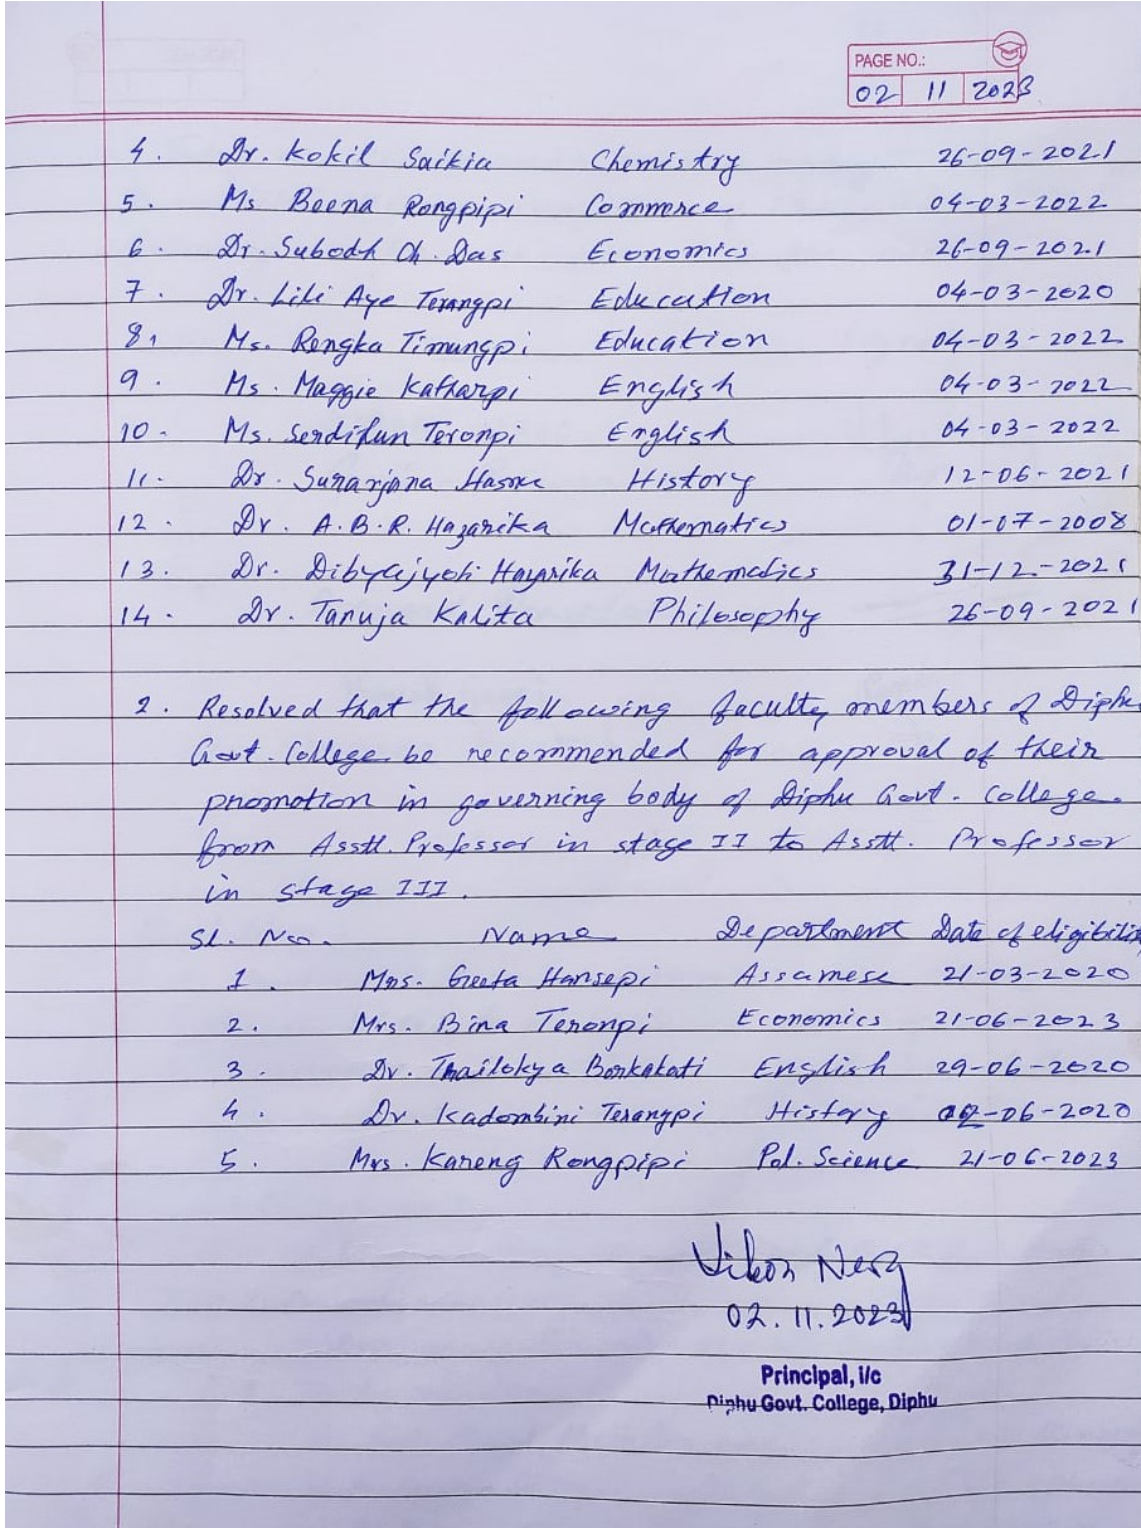 PAGE NO.:
02 11 2023
4. Dr. Kokil Saikia Chemistry 26-09-2021
5. Ms Beena Rongpipi Commerce 04-03-2022
6. Dr. Subodh Ch. Das Economics 26-09-2021
7. Dr. Lili Aye Terangpi Education 04-03-2020
8. Ms. Rengka Timungpi Education 04-03-2022
9. Ms. Maggie Katharpi English 04-03-2022
10. Ms. Serdihun Teronpi English 04-03-2022
11. Dr. Suranjana Hasnu History 12-06-2021
12. Dr. A.B.R. Hazarika Mathematics 01-07-2008
13. Dr. Dibyajyoti Hazarika Mathematics 31-12-2021
14. Dr. Tanuja Kalita Philosophy 26-09-2021
2. Resolved that the following faculty members of Diphu
Govt. College be recommended for approval of their
promotion in governing body of Diphu Govt. College
from Asstt. Professor in stage II to Asstt. Professor
in stage III.
Sl. No. Name Department Date of eligibility
1. Mrs. Geeta Hansepi Assamese 21-03-2020
2. Mrs. Bina Teronpi Economics 21-06-2023
3. Dr. Trailokya Borkakati English 29-06-2020
4. Dr. Kadombini Terangpi History 02-06-2020
5. Mrs. Kareng Rongpipi Pol. Science 21-06-2023
02.11.2023
Principal, i/c
Diphu Govt. College, Diphu